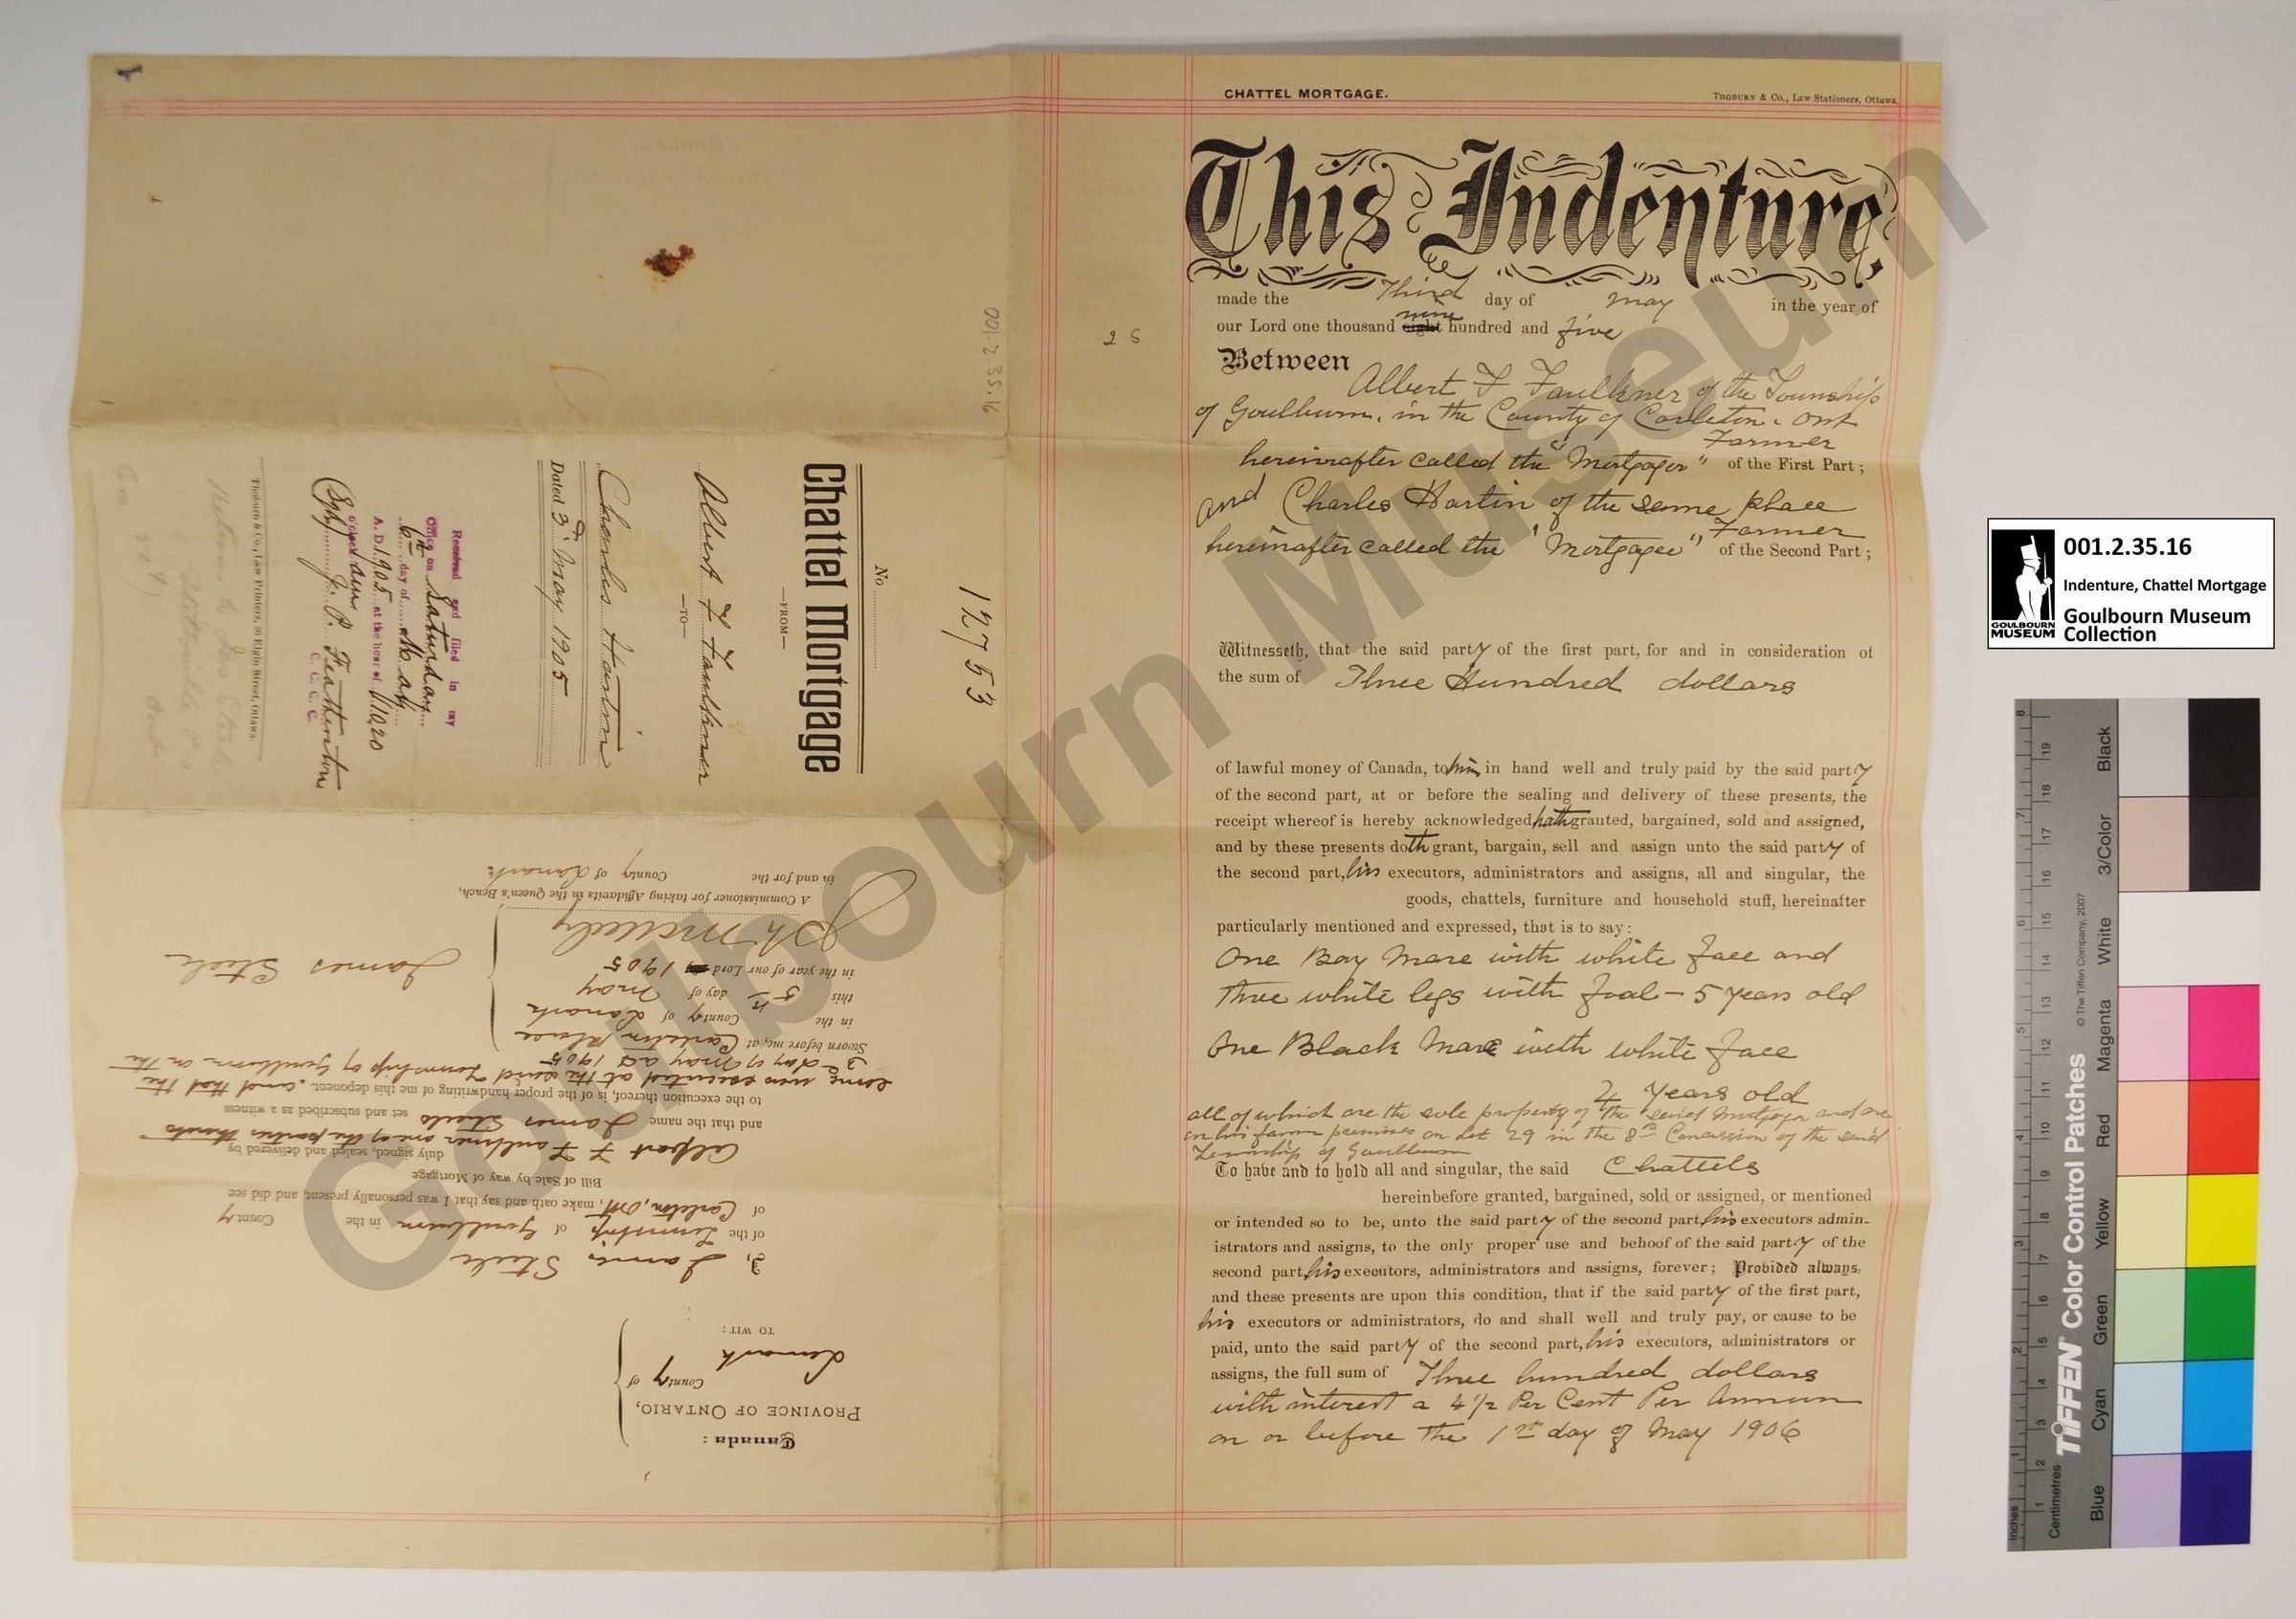 CHATTEL MORTGAGE.
THOBURN & Co., Law Stationers, Ottawa.
This Indenture,
made the Third day of May in the year of
our Lord one thousand eight nine hundred and five
Between
Albert F Faulkner of the Township
of Goulburn, in the County of Carleton, Ont
Farmer
hereinafter called the "Mortgagor" of the First Part ;
and Charles Hartin of the same place
Farmer
hereinafter called the "Mortgagee" of the Second Part ;
Witnesseth, that the said party of the first part, for and in consideration of
the sum of Three Hundred dollars
of lawful money of Canada, to him in hand well and truly paid by the said party
of the second part, at or before the sealing and delivery of these presents, the
receipt whereof is hereby acknowledged hath granted, bargained, sold and assigned,
and by these presents doth grant, bargain, sell and assign unto the said party of
the second part, his executors, administrators and assigns, all and singular, the
goods, chattels, furniture and household stuff, hereinafter
particularly mentioned and expressed, that is to say:
One Bay Mare with white face and
three white legs with foal - 5 years old
One Black Mare with white face
4 years old
all of which are the sole property of the said Mortgagor and are
on his farm premises on Lot 29 in the 8th Concession of the said
Township of Goulburn
To have and to hold all and singular, the said Chattels
hereinbefore granted, bargained, sold or assigned, or mentioned
or intended so to be, unto the said party of the second part, his executors admin-
istrators and assigns, to the only proper use and behoof of the said party of the
second part, his executors, administrators and assigns, forever ; Provided always,
and these presents are upon this condition, that if the said party of the first part,
his executors or administrators, do and shall well and truly pay, or cause to be
paid, unto the said party of the second part, his executors, administrators or
assigns, the full sum of Three hundred dollars
with interest a 4 1/2 Per Cent Per Annum
on or before the 1st day of May 1906
001.2.35.16
12753
No
Chattel Mortgage
—FROM—
Albert F Faulkner
—TO—
Charles Hartin
Dated 3d May 1905
Received and filed in my
Office on Saturday
6th day of May
A.D. 1905 at the hour of 11/10.20
o'clock am
(Sgd) J. P. Featherston
C. C. C. C.
Thoburn & Co., Law Printers, 36 Elgin Street, Ottawa.
Canada :
PROVINCE OF ONTARIO,
County of
Lanark
TO WIT :
I, James Steele
of the Township of Goulburn in the County
of Carleton, Ont, make oath and say that I was personally present, and did see
Bill of Sale by way of Mortgage
duly signed, sealed and delivered by
Albert F Faulkner one of the parties thereto
and that the name James Steele set and subscribed as a witness
to the execution thereof, is of the proper handwriting of me this deponent, and that the
same was executed at the said Township of Goulburn on the
3d day of May AD 1905
Sworn before me, at Carleton Place
in the County of Lanark
this 5th day of May
in the year of our Lord 1905
James Steele
A Commissioner for taking Affidavits in the Queen's Bench,
in and for the County of Lanark
Goulbourn Museum
GOULBOURN
MUSEUM
001.2.35.16
Indenture, Chattel Mortgage
Goulbourn Museum
Collection
TIFFEN Color Control Patches
© The Tiffen Company, 2007
Inches
Centimetres
Blue
Cyan
Green
Yellow
Red
Magenta
White
3/Color
Black